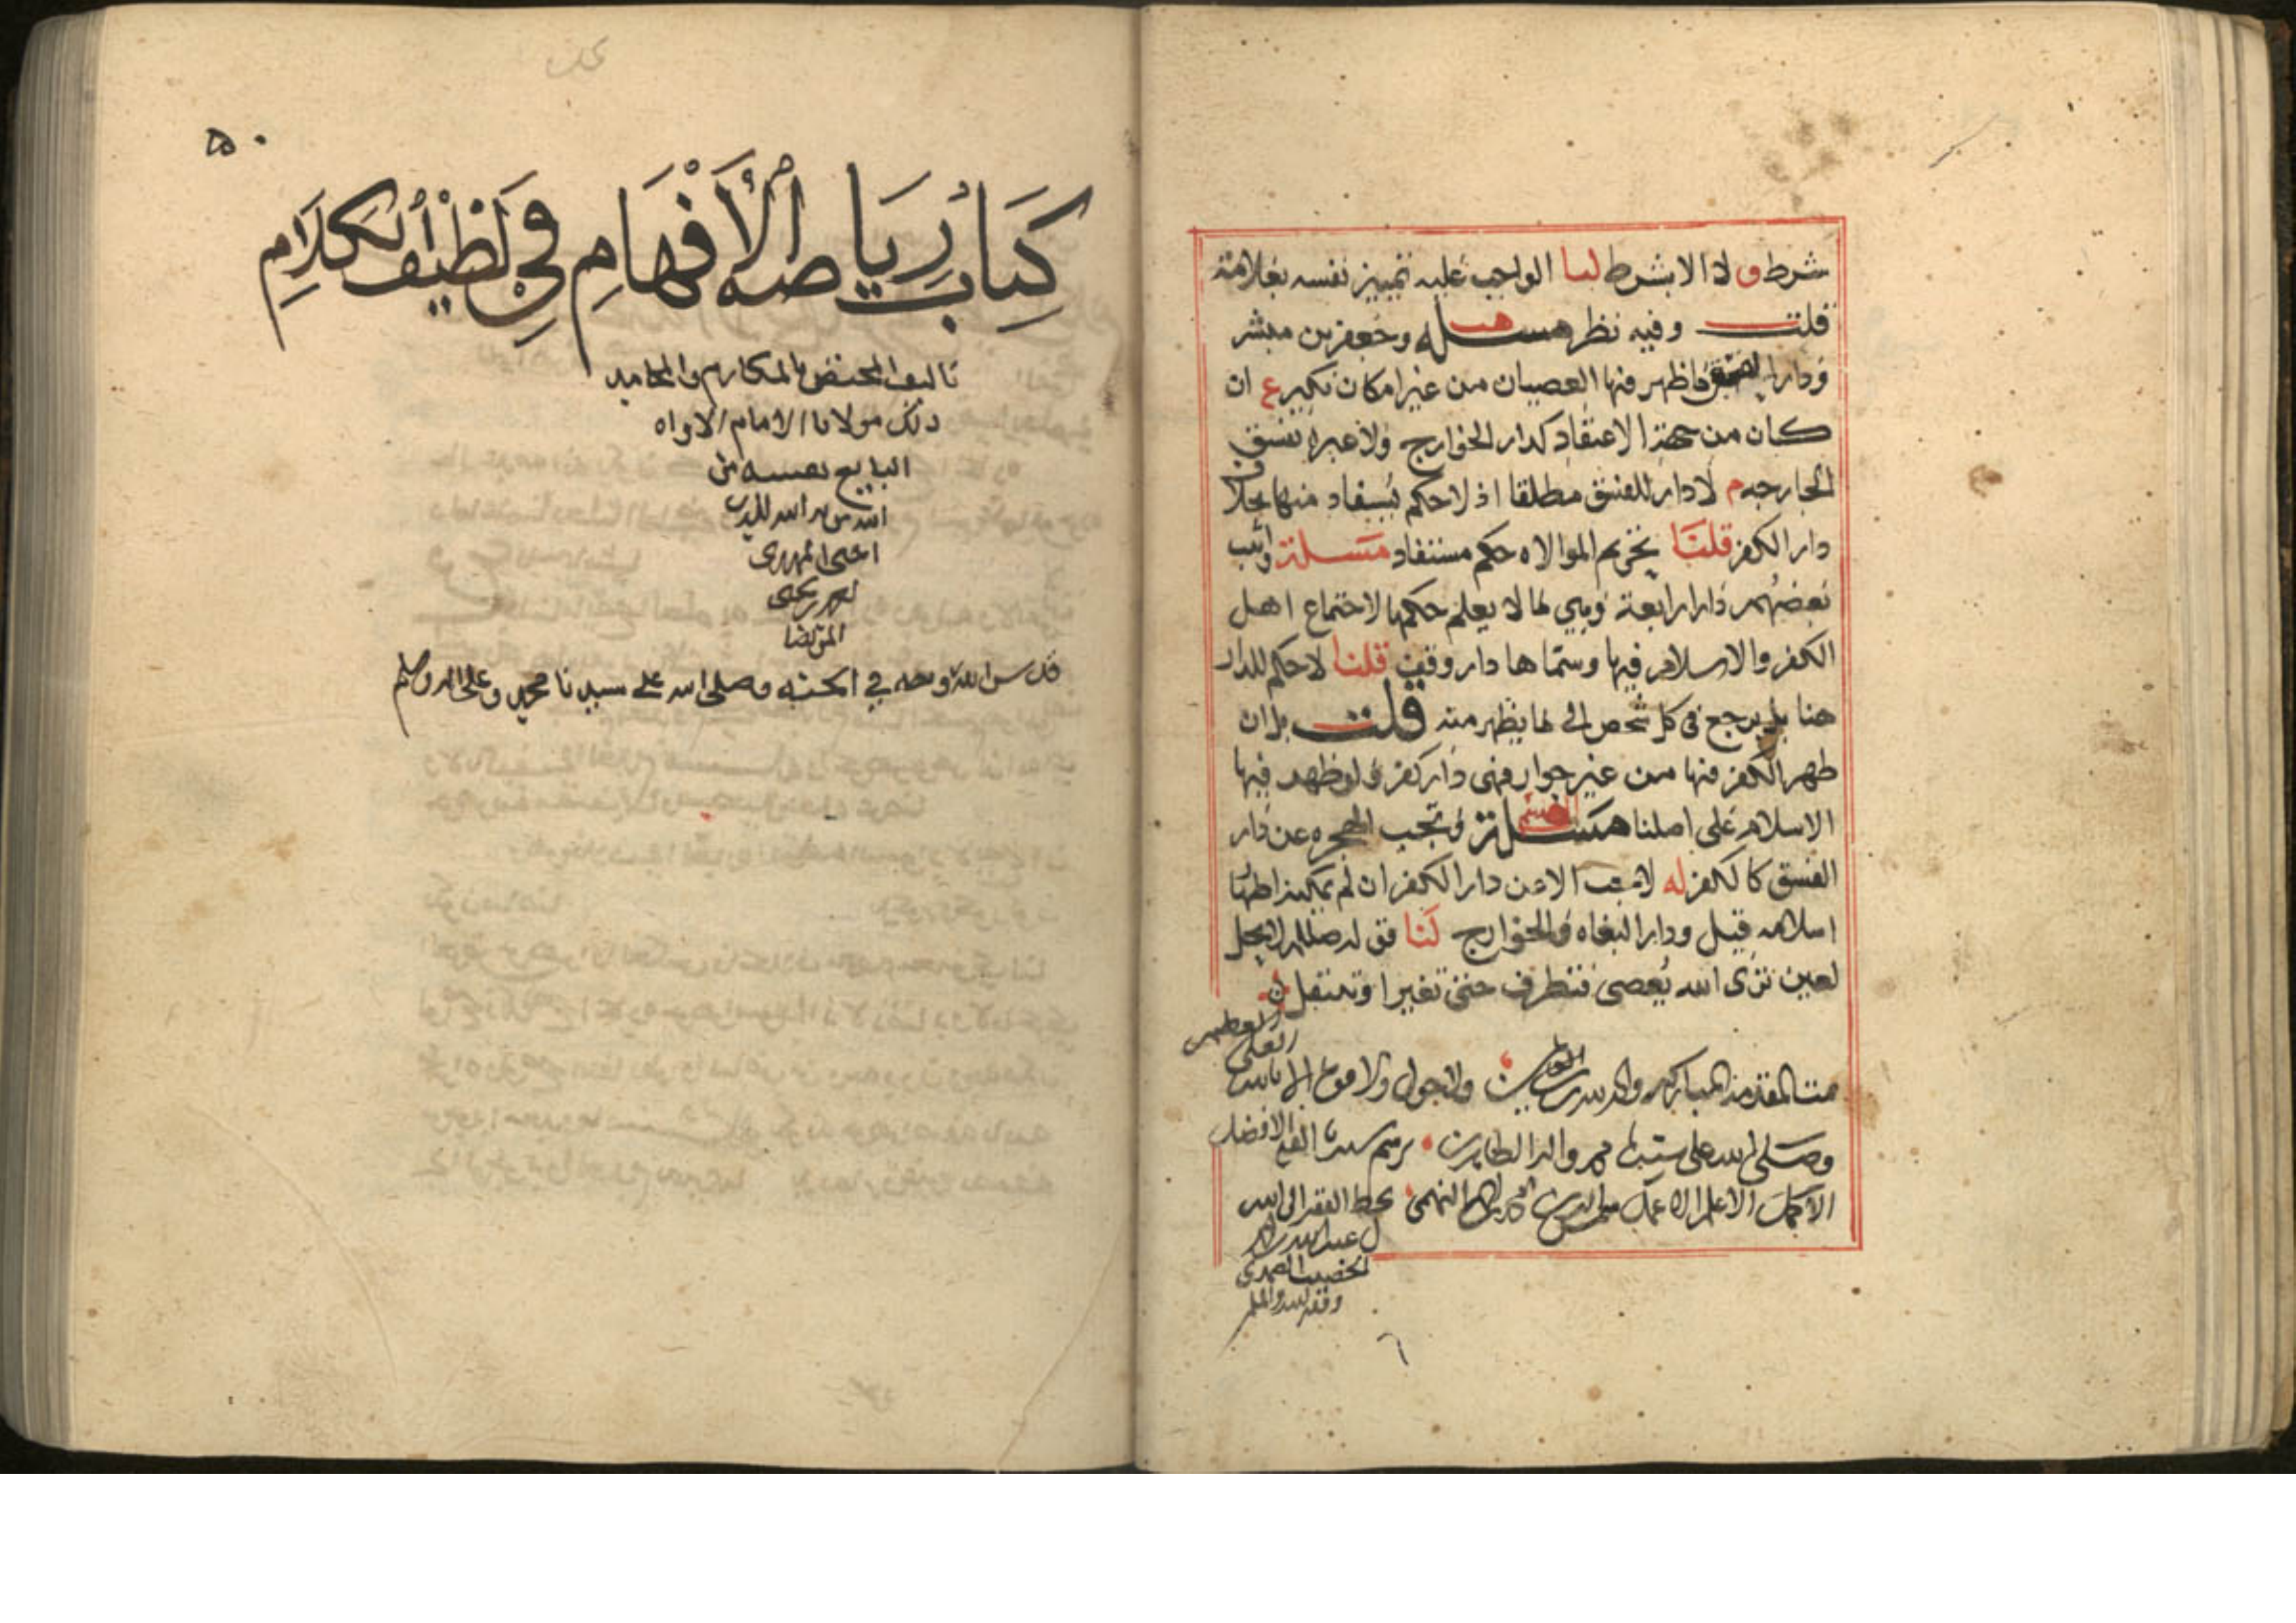 شرط و لاد الا بشرط لنا الواجب عليه تمييز نفسه بعلامة
قلت وفيه نظر مسئله وجعفر بن مبشر
ودار الفسق ما ظهر فيها العصيان من غير امكان نكير ع ان
كان من جهة الاعتقاد كدار الخوارج ولا عبرة بفسق
الجارحه م لا دار للفسق مطلقا اذ لا حكم يستفاد منها بخلاف
دار الكفر قلنا تحريم الموالاه حكم مستفاد مسئلة واثبت
بعضهم دارا رابعة وهي ما لا يعلم حكمها لاجتماع اهل
الكفر والاسلام فيها وسماها دار وقف قلنا لا حكم للدار
هنا بل يرجع في كل شخص الى ما يظهر منه قلت بل ان
ظهر الكفر فيها من غير جوار فهي دار كفر ولو ظهر فيها
الاسلام على اصلنا مسئلة وتجب الهجره عن دار
الفسق كالكفر له لا تجب الا من دار الكفر ان لم يمكنه اظهار
اسلامه قيل ودار البغاه والخوارج لنا قوله صللم لا يحل
لعين ترى الله يعصى فتطرف حتى تغير او تنتقل
تمت المقدمة المباركه والحمد لله رب العالمين ولا حول ولا قوة الا بالله
العلي
العظيم
وصلى الله على سيدنا محمد واله الطاهرين برسم سيدنا الفقيه الافضل
الاكمل الاعلم الاعمل النهمي بخط الفقير الى الله
عبد الله
وفقه الله
٥٠
كِتَابُ رِيَاضَة الأَفْهَامِ فِي لَطِيْفِ الكَلَامِ
تاليف المختص بالمكارم والمحامد
ذلك مولانا الامام الاواه
البايع نفسه من
الله لدين
احمد بن يحيى
المرتضا
قدس الله روحه في الجنه وصلى الله على سيدنا محمد وعلى اله وسلم